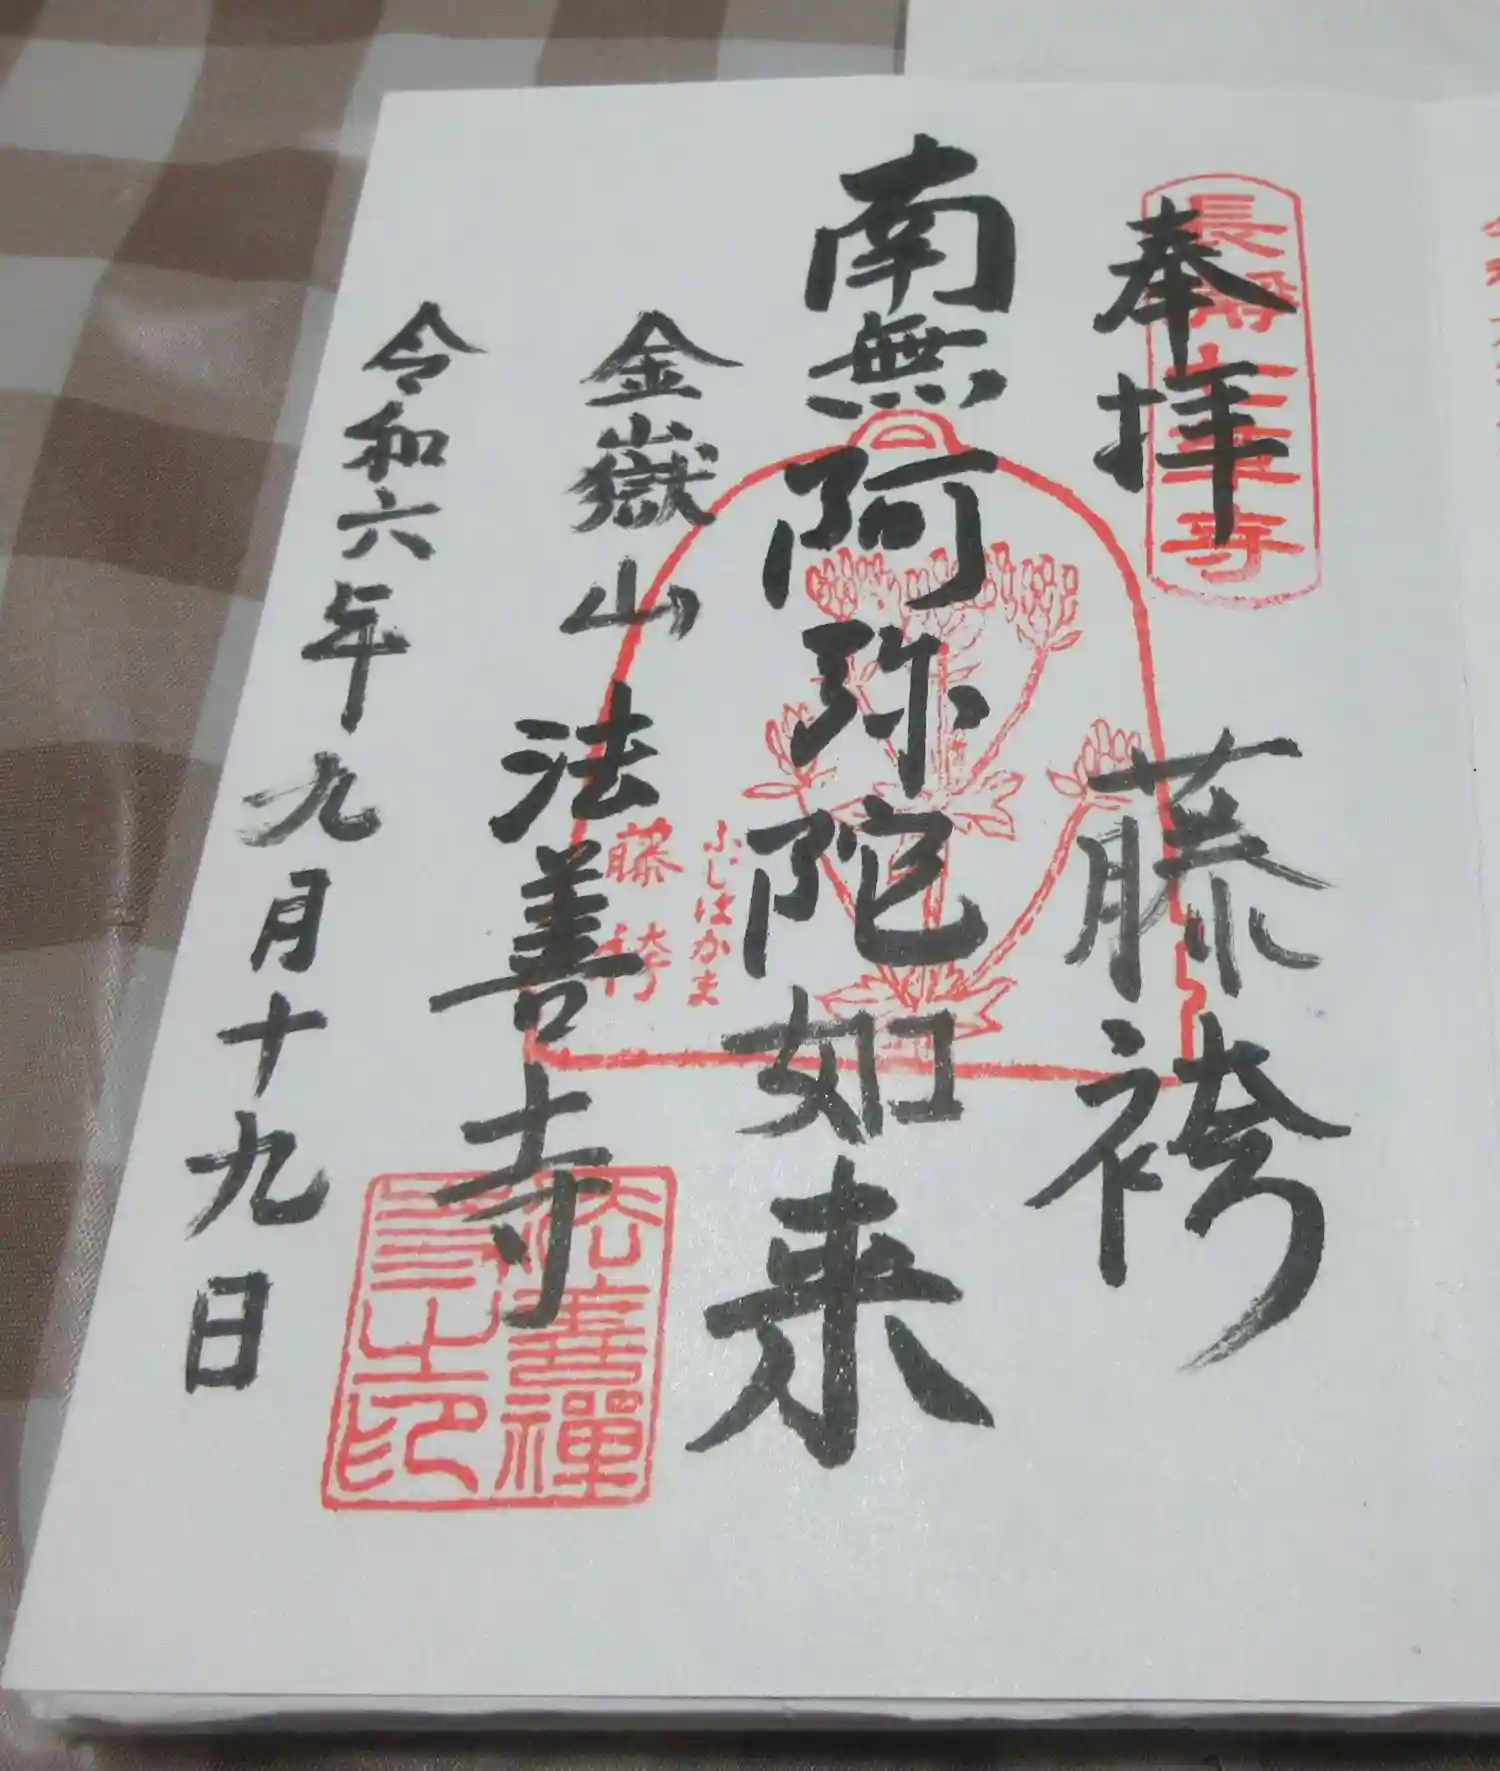 奉拝
藤袴
南無阿弥陀如来
金嶽山
法善寺
令和六年九月十九日
長瀞七草寺
ふじばかま
藤袴
法善禅
寺之印